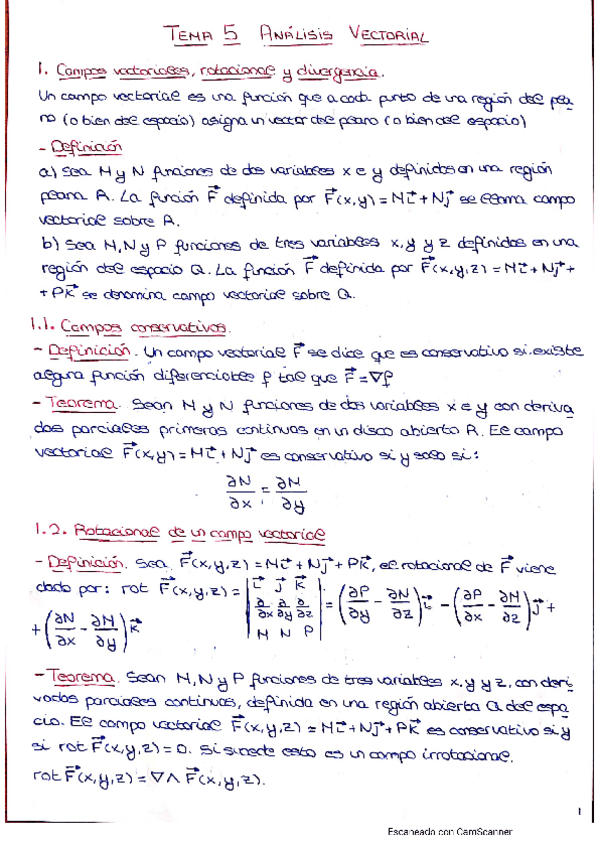 TEMA 5 ANÁLISIS VECTORIAL
1. Campos vectoriales, rotacional y divergencia.
Un campo vectorial es una función que a cada punto de una región del pla-
no (o bien del espacio) asigna un vector del plano (o bien del espacio)
- Definición
a) Sea M y N funciones de dos variables x e y definidos en una región
plana R. La función F⃗ definida por F⃗(x,y) = Mi⃗ + Nj⃗ se llama campo
vectorial sobre R.
b) Sea M, N y P funciones de tres variables x, y y z definidos en una
región del espacio Q. La función F⃗ definida por F⃗(x,y,z) = Mi⃗ + Nj⃗ +
+ Pk⃗ se denomina campo vectorial sobre Q.
1.1. Campos conservativos.
- Definición. Un campo vectorial F⃗ se dice que es conservativo si existe
alguna función diferenciable f tal que F⃗ = ∇f
- Teorema. Sean M y N funciones de dos variables x e y con deriva
das parciales primeras continuas en un disco abierto R. El campo
vectorial F⃗(x,y) = Mi⃗ + Nj⃗ es conservativo si y solo si:
∂N/∂x = ∂M/∂y
1.2. Rotacional de un campo vectorial
- Definición. Sea F⃗(x,y,z) = Mi⃗ + Nj⃗ + Pk⃗, el rotacional de F⃗ viene
dado por: rot F⃗(x,y,z) = | i⃗ j⃗ k⃗ ; ∂/∂x ∂/∂y ∂/∂z ; M N P | = (∂P/∂y - ∂N/∂z) i⃗ - (∂P/∂x - ∂M/∂z) j⃗ +
+ (∂N/∂x - ∂M/∂y) k⃗
- Teorema. Sean M, N y P funciones de tres variables x, y y z, con deri-
vadas parciales continuas, definida en una región abierta Q del espa-
cio. El campo vectorial F⃗(x,y,z) = Mi⃗ + Nj⃗ + Pk⃗ es conservativo si y
si rot F⃗(x,y,z) = 0. Si sucede esto es un campo irrotacional.
rot F⃗(x,y,z) = ∇ ∧ F⃗(x,y,z).
1
Escaneado con CamScanner